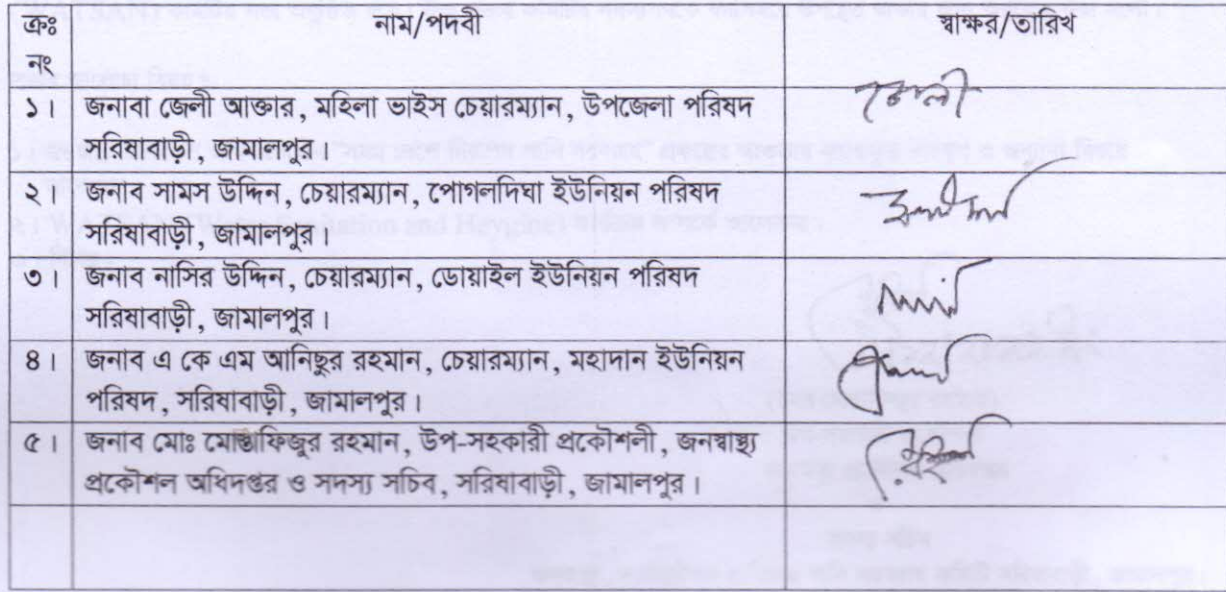 ক্রঃ নাম/পদবী স্বাক্ষর/তারিখ
নং
১। জনাবা জেলী আক্তার, মহিলা ভাইস চেয়ারম্যান, উপজেলা পরিষদ
সরিষাবাড়ী, জামালপুর।
২। জনাব সামস উদ্দিন, চেয়ারম্যান, পোগলদিঘা ইউনিয়ন পরিষদ
সরিষাবাড়ী, জামালপুর।
৩। জনাব নাসির উদ্দিন, চেয়ারম্যান, ডোয়াইল ইউনিয়ন পরিষদ
সরিষাবাড়ী, জামালপুর।
৪। জনাব এ কে এম আনিছুর রহমান, চেয়ারম্যান, মহাদান ইউনিয়ন
পরিষদ, সরিষাবাড়ী, জামালপুর।
৫। জনাব মোঃ মোস্তাফিজুর রহমান, উপ-সহকারী প্রকৌশলী, জনস্বাস্থ্য
প্রকৌশল অধিদপ্তর ও সদস্য সচিব, সরিষাবাড়ী, জামালপুর।